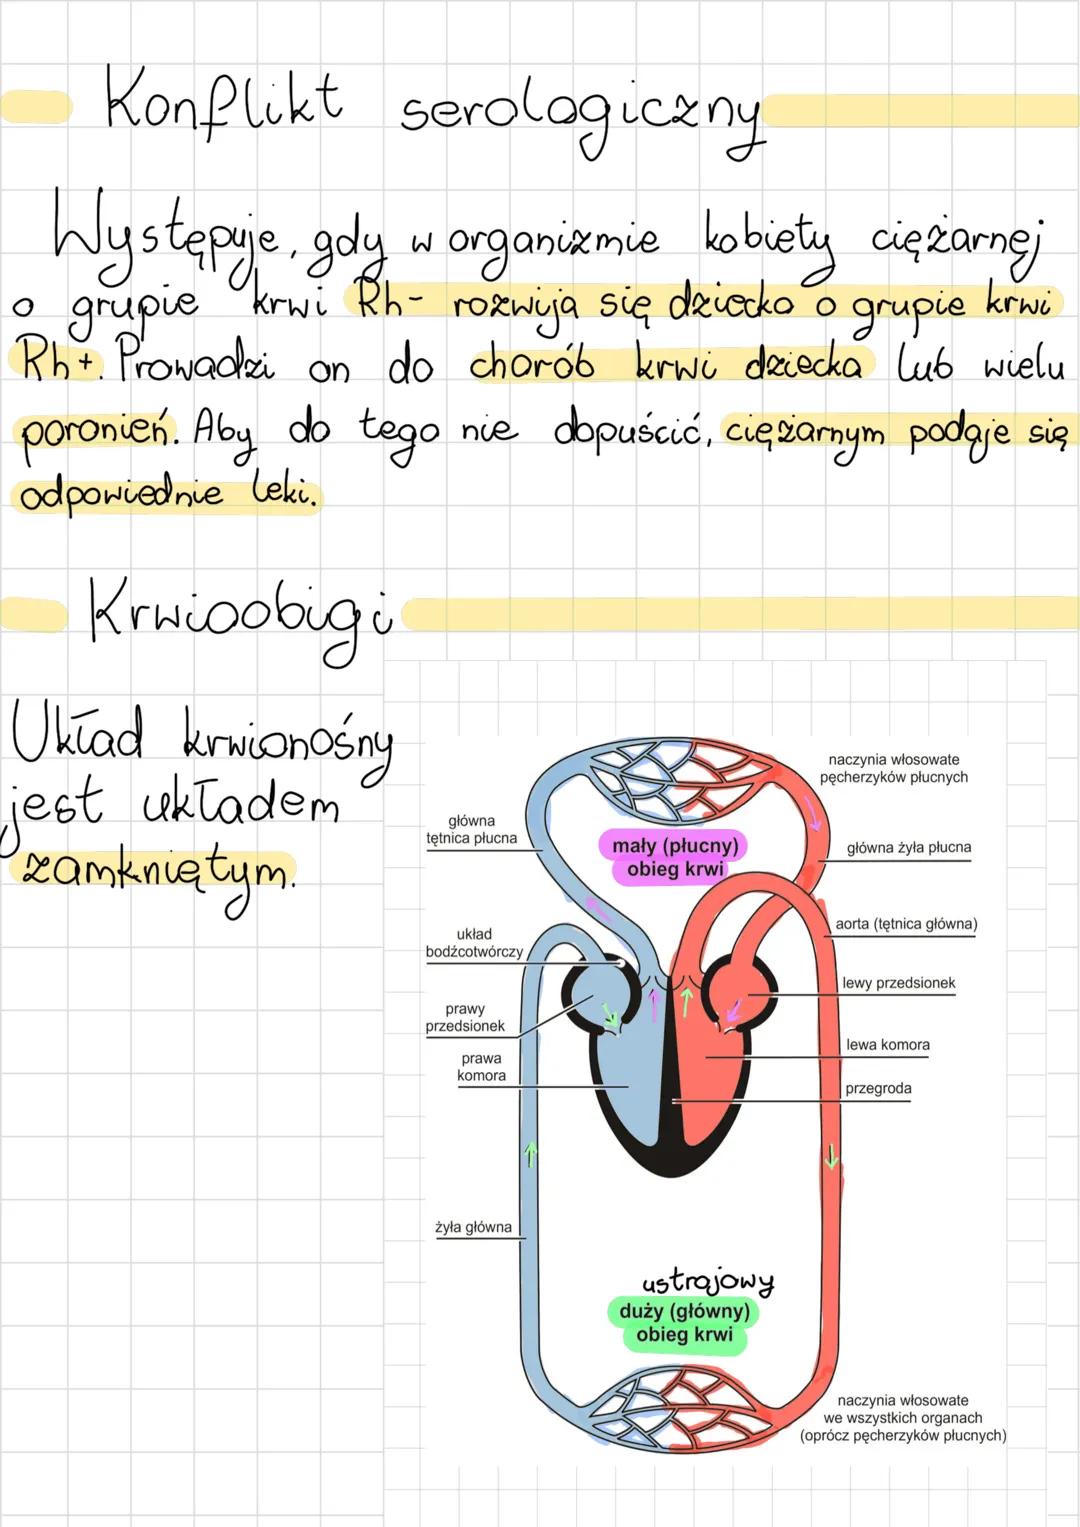 Konflikt serologiczny
Występuje, gdy w organizmie kobiety ciężarnej
o grupie krwi Rh- rozwija się dziecko o grupie krwi
Rh+. Prowadzi on do chorób krwi dziecka lub wielu
poronień. Aby do tego nie dopuścić, ciężarnym podaje się
odpowiednie leki.
Krwioobigi
Układ krwionośny
jest układem
zamkniętym.
naczynia włosowate
pęcherzyków płucnych
główna
tętnica płucna
mały (płucny)
obieg krwi
główna żyła płucna
aorta (tętnica główna)
układ
bodźcotwórczy
lewy przedsionek
prawy
przedsionek
lewa komora
prawa
komora
przegroda
żyła główna
ustrojowy
duży (główny)
obieg krwi
naczynia włosowate
we wszystkich organach
(oprócz pęcherzyków płucnych)